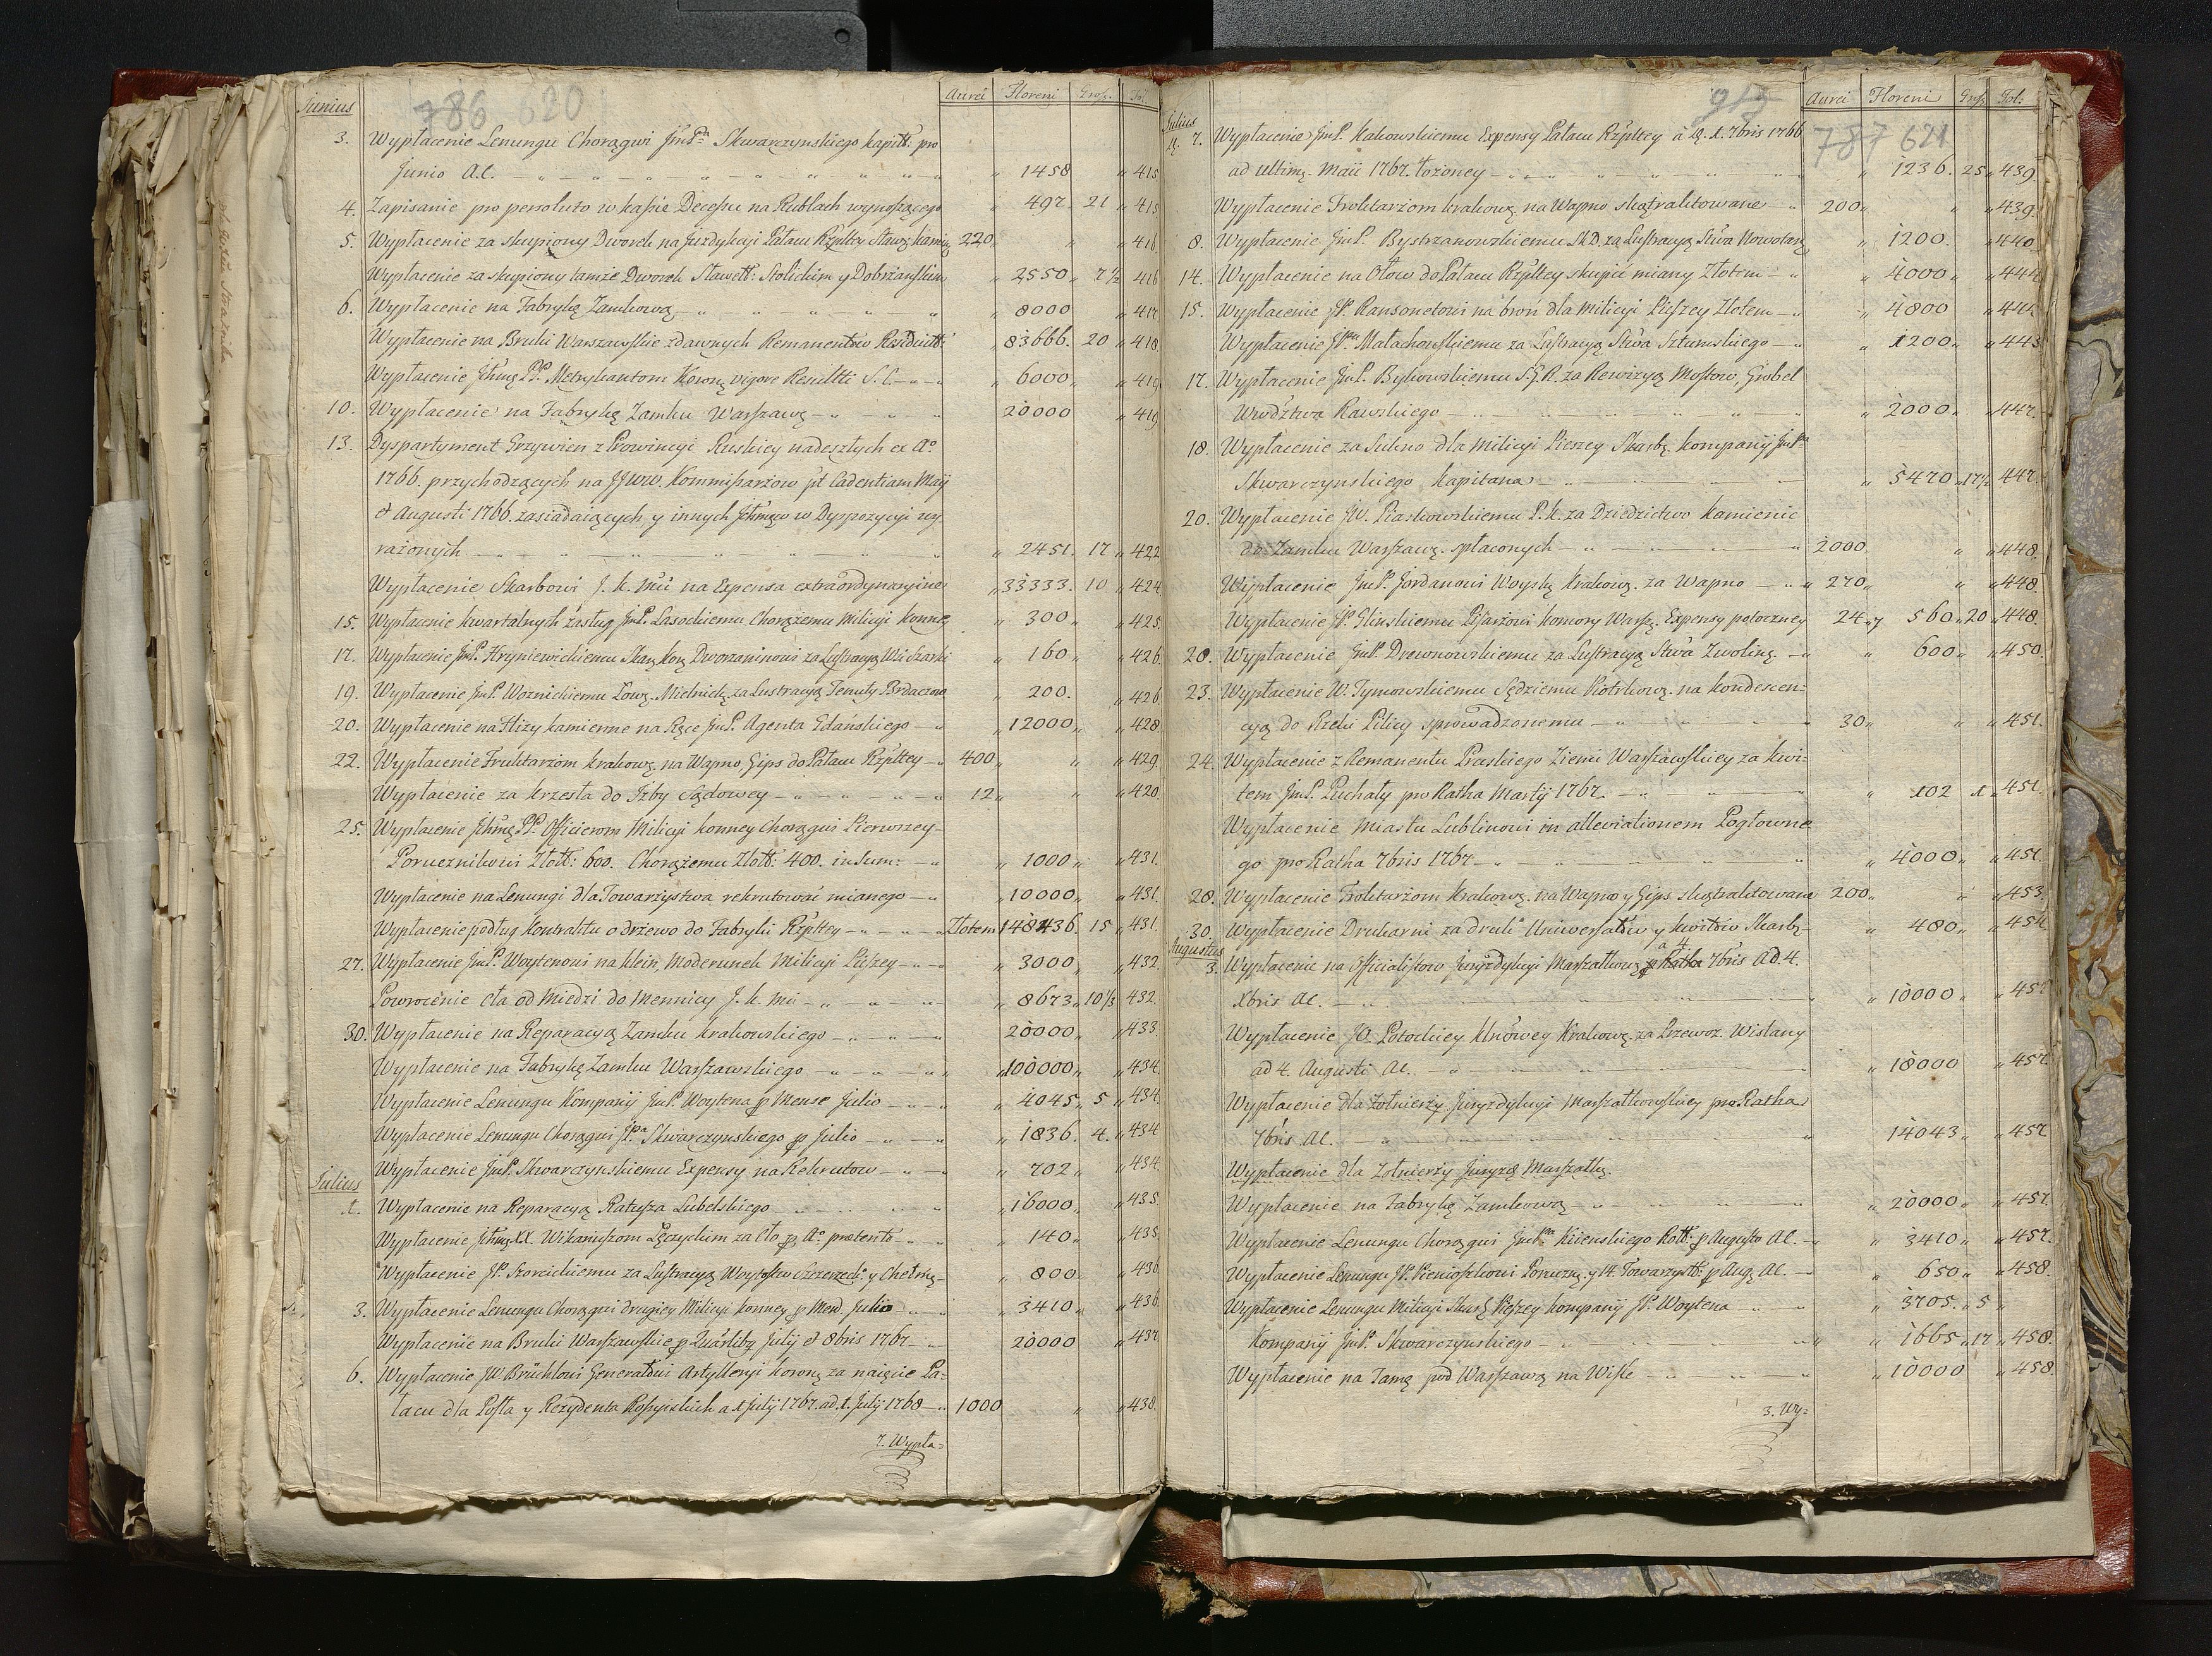 Junius
786 620
Aurei Floreni Gross. Fol.
3. Wypłacenie Lenungu Chorągwi JmPa Skwarczynskiego kapitt: pro
Junio A.C. 1458 415
4. Zapisanie pro persoluto w kassie Decessu na Rublach wynoszącego 497 21 415
5. Wypłacenie za skupiony Dworek na Juryzdykcyi Pałacu Rzpltey 220 416
Wypłacenie za skupiony tamże Dworek Sławett: Stolickim y Dobrzanskim 2550 7½ 416
6. Wypłacenie na Fabrykę Zamkową 8000 417
Wypłacenie na Bruki Warszawskie z dawnych Remanentow 83666. 20 418
Wypłacenie Ichmę PP. Metrykantom Koronę vigore Resultti S.C. 6000 419
10. Wypłacenie na Fabrykę Zamku Warszawę 20000 419
13. Dyspartyment Grzywien z Prowincyi Ruskiey nadeszłych ex Ao
1766. przychodzących na JJWW. Kommissarzow pt Cadentiam Maij
et Augusti 1766. zasiadaiących y innych Ichmęw w Dyspozycyi wy
rażonych 2451. 17 422
Wypłacenie Skarbowi J. K. Mci na Expensa extraordynaryine 33333. 10 424
15. Wypłacenie kwartalnych zasług JmP. Lasockiemu Chorążemu Milicyi Konney 300 425
17. Wypłacenie JmP. Hryniewickiemu Skarę Korę Dworzaninowi za Lustracyą 160 426
19. Wypłacenie JmP. Woznickiemu Łowę. Mielnickę za Lustracyą Tenuty 200. 426
20. Wypłacenie na Flizy kamienne na Ręce JmP. Agenta Gdańskiego 12000 428
22. Wypłacenie Fruktarzom Krakowę na Wapno, Gips do Pałacu Rzpltey 400 429
Wypłacenie za krzesła do Izby Sądowey 12 420
25. Wypłacenie Ichmę PP. Officierom Milicyi konney Chorągwi Pierwszey
Porucznikowi Złott: 600. Chorążemu Złott: 400. in Sum: 1000 431.
Wypłacenie na Lenungi dla Towarzystwa rekrutować mianego 10000 431.
Wypłacenie podług Kontraktu o drzewo do Fabryki Rzpltey Złotem 148436. 15 431.
27. Wypłacenie JmP. Woytenowi na klein, Moderunek Milicyi Pieszey 3000 432.
Powrocenie cła od Miedzi do Mennicy J. K. Mci 8673. 10⅓ 432.
30. Wypłacenie na Reparacyą Zamku Krakowskiego 20000 433.
Wypłacenie na Fabrykę Zamku Warszawskiego 100000 434.
Wypłacenie Lenungu Kompanij JmP. Woytena p Mense Julio 4045 5 434.
Wypłacenie Lenungu Chorągwi JPa Skwarczynskiego p Julio 1836. 4. 434
Wypłacenie JmP. Skwarczynskiemu Expensy na Rekrutow 702 434.
Julius
1. Wypłacenie na Reparacyą Ratusza Lubelskiego 16000 435
Wypłacenie Ichmę XX. Wikaryuszom Łęczyckim za Cło p Ao praeterito 140 435.
Wypłacenie JP. Szorcickiemu za Lustracyą Woytostw 800 436
3. Wypłacenie Lenungu Chorągwi drugiey Milicyi konney p Men. Julio 3410 436.
Wypłacenie na Bruki Warszawskie p Julij et 8bris 1767. 20000 437.
6. Wypłacenie JW. Brüchlowi Generałowi Artylleryi Koronę za naięcie Pa=
łacu dla Posła y Rezydenta Rossyiskich a 1 Julij 1767. ad 1. Julij 1768 1000 438.
7. Wypła=
Julius
787 621
Aurei Floreni Gross. Fol:
7. Wypłacenie JmP. Kakowskiemu Expensy Pałacu Rzpltey à 1. 7bris 1766
ad ultimę. Maii 1767. łożoney 1236. 25 439.
Wypłacenie Fruktarzom Krakowę na Wapno skątraktowane 200 439.
8. Wypłacenie JmP. Bystrzanowskiemu S.K.D. za Lustracyą Stwa Nowotarę 1200. 440.
14. Wypłacenie na Ołow do Pałacu Rzpltey skupić miany Złotem 4000 444
15. Wypłacenie JP. Ransonetowi na broń dla Milicyi Pieszey Złotem 4800 444
Wypłacenie JPu Małachowskiemu za Lustracyą Stwa Sztumskiego 1200 443
17. Wypłacenie JmP. Bykowskiemu S.G.R. za Rewizyą Mostow, Grobel
Wwdztwa Rawskiego 2000 447.
18. Wypłacenie za Sukno dla Milicyi Pieszey Skarbę. Kompanij JmPa
Skwarczynskiego Kapitana 5470 17½ 447.
20. Wypłacenie JW. Piaskowskiemu P.K. za Dziedzictwo Kamienic
do Zamku Warszawę. spłaconych 2000 448.
Wypłacenie JmP. Jordanowi Woyskę Krakowę. za Wapno 270 448.
Wypłacenie JP. Glinskiemu Pisarzowi Komory Warszę. Expensy potoczney 24 y 560 20 448.
20. Wypłacenie JmP. Drewnowskiemu za Lustracyą Stwa Zwolinę 600 450.
23. Wypłacenie W. Tymowskiemu Sędziemu Piotrkowę. na kondescen=
cyą do Rzeki Pilicy sprowadzonemu 30 451.
24. Wypłacenie z Remanentu Praskiego Ziemi Warszawskiey za kwi=
tem JmP. Puchały pro Ratha Martij 1767. 102 1 451.
Wypłacenie Miastu Lublinowi in alleviationem Pogłowne
go pro Ratha 7bris 1767 4000 451.
28. Wypłacenie Fruktarzom Krakowę. na Wapno y Gips skątraktowane 200 453.
30. Wypłacenie Drukarni za druk Uniwersałów y kwitów Skarbę 480 454
Augustus
3. Wypłacenie na Officialistow Juryzdykcyi Marszałkowę a 4 7bris Ad. 4.
Xbris AC. 10000 457
Wypłacenie JO. Potockiey Kłnówey Krakowę. za Przewoz. Wislany
ad 4. Augusti AC. 18000 457.
Wypłacenie dla Zołnierzy Juryzdykcyi Marszałkowskiey pro Ratha
7bris AC. 14043 457.
Wypłacenie dla Zołnierzy Juryzę Marszałkę.
Wypłacenie na Fabrykę Zamkową 20000 457.
Wypłacenie Lenungu Chorągwi JmPa Kiienskiego Rott: p Augusto AC. 3410 457.
Wypłacenie Lenungu JP. Pieniąszkowi Porucznę. y 14. Towarzystt: p Augę AC. 650 458.
Wypłacenie Lenungu Milicyi Skarb. Pieszey Kompanij JP. Woytena 3705. 5
Kompanij JmP. Skwarczynskiego 1665 17 458.
Wypłacenie na Tamę pod Warszawą na Wisle 10000 458.
3. Wy=